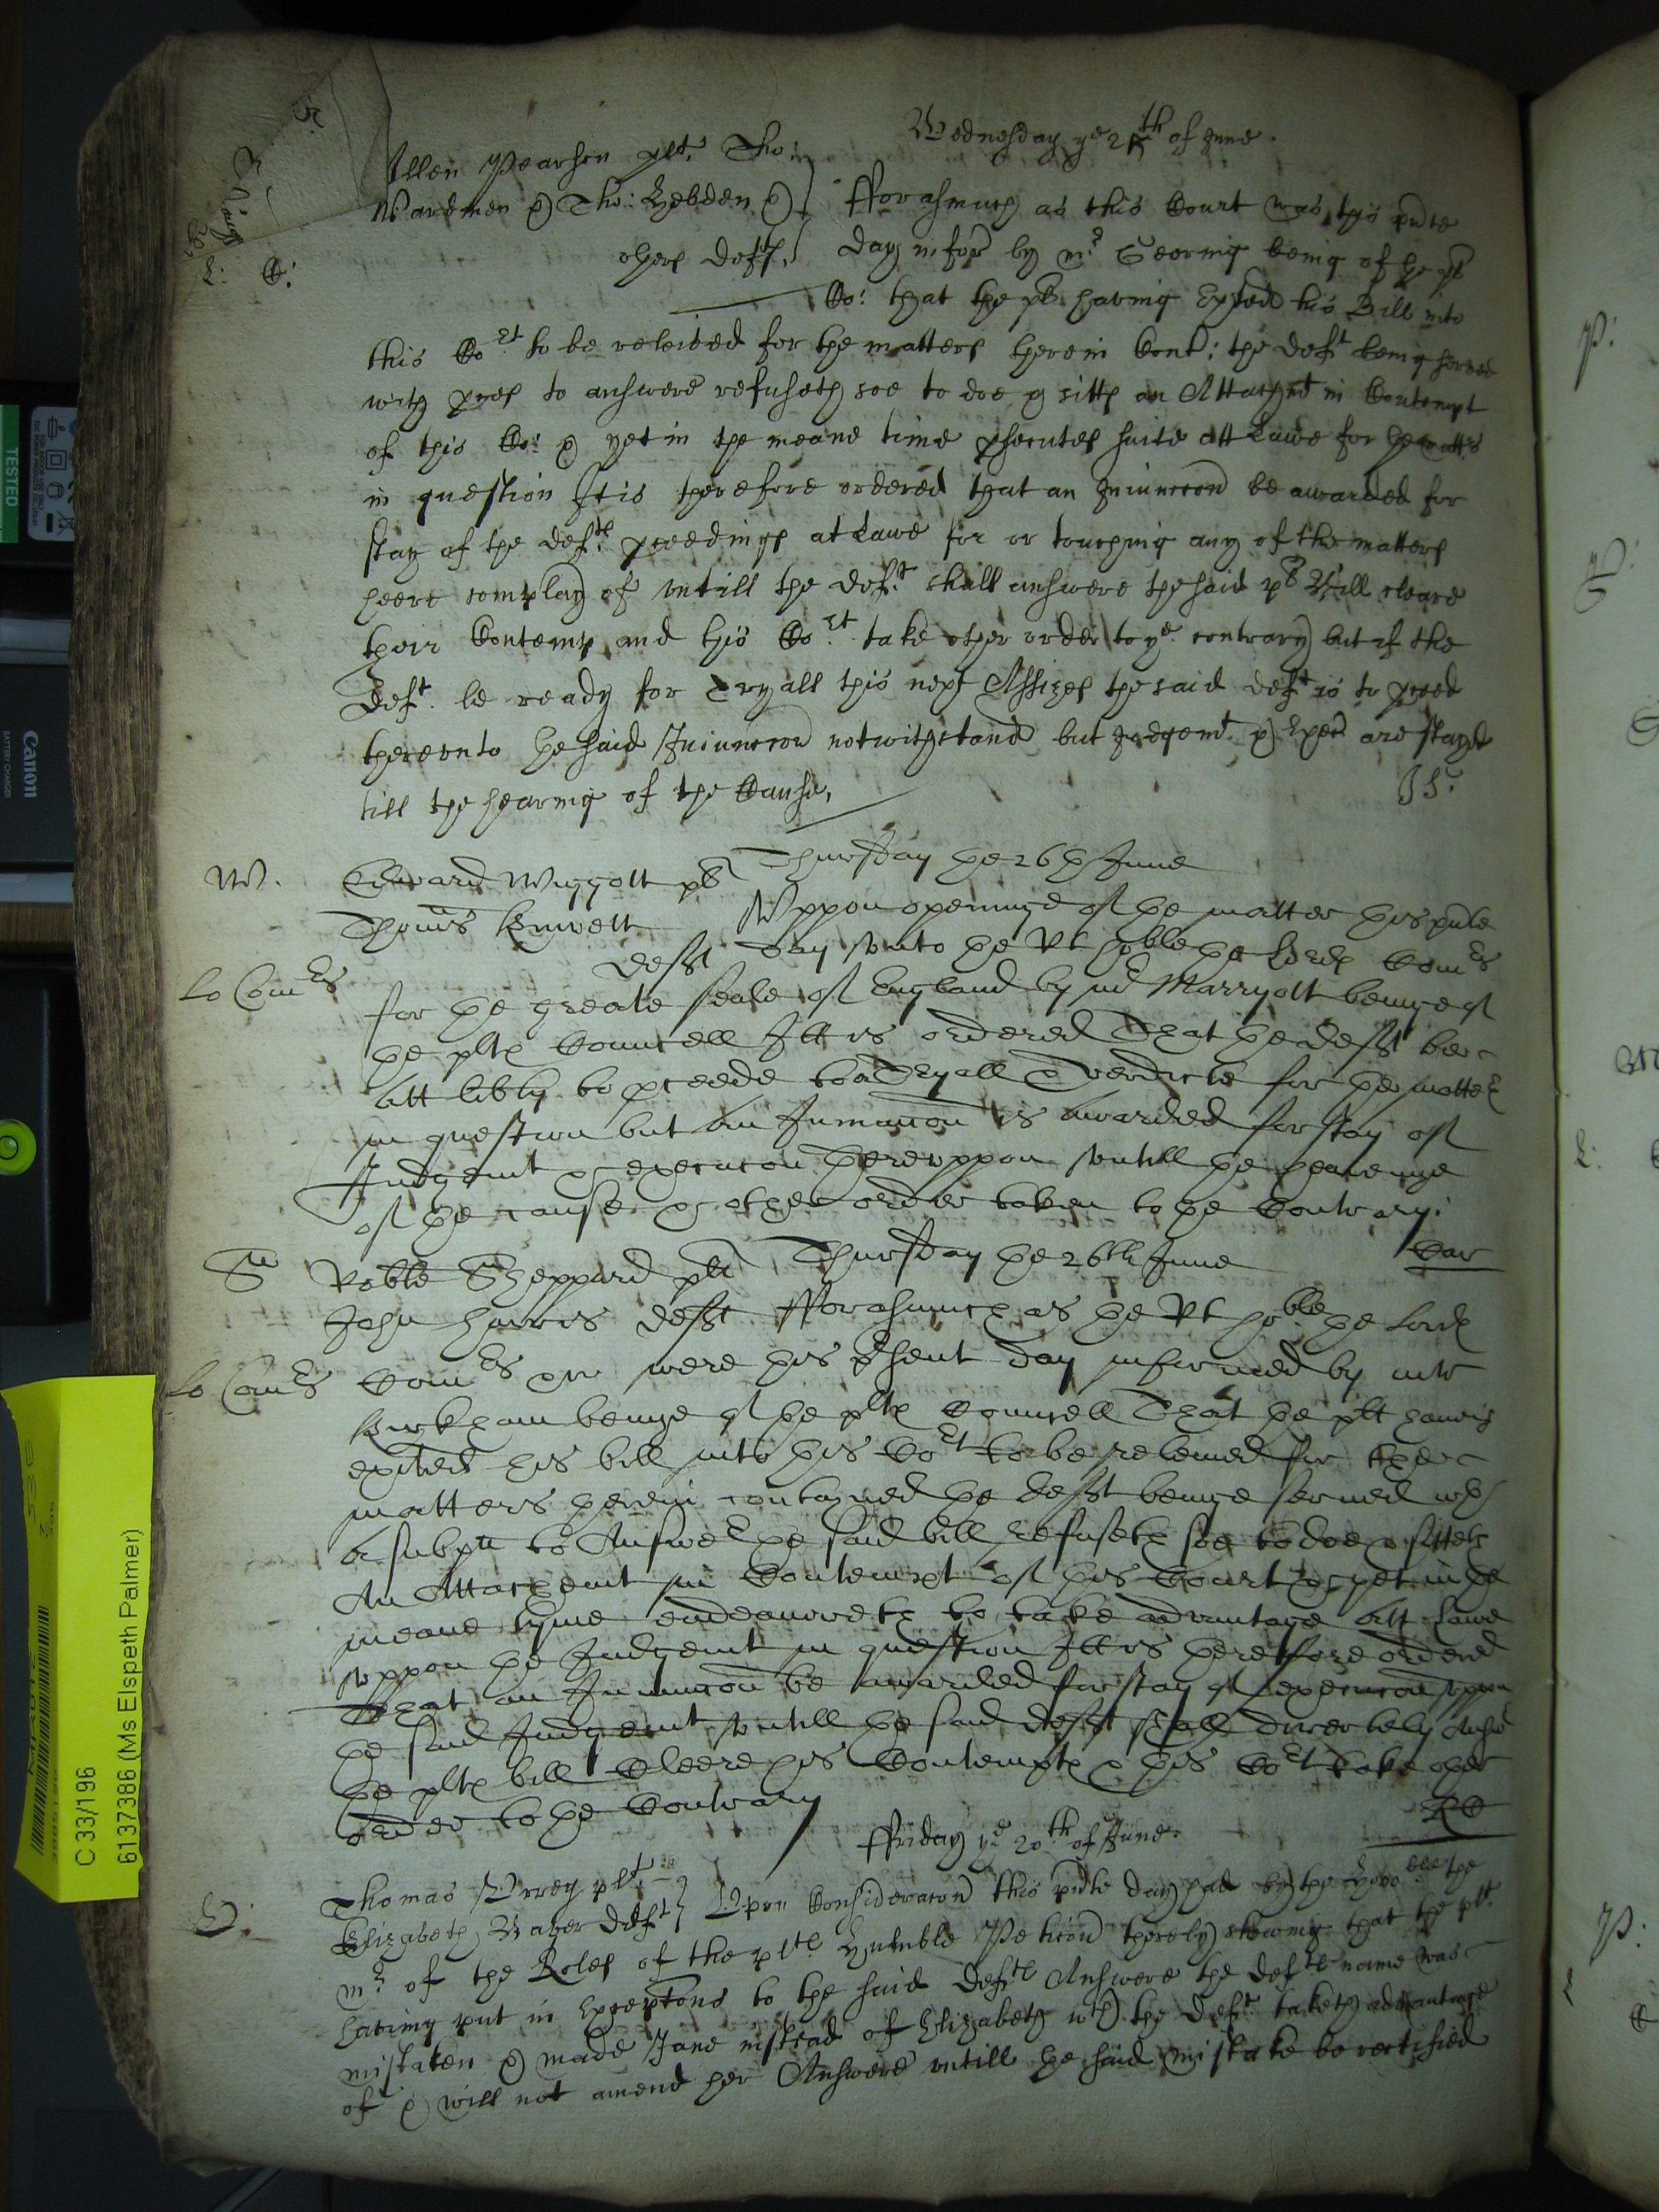 Wednesday ye 25th of June.
Allen Pearson plt. Tho:
Wardman & Tho: Hebden &
others Defts.
Fforasmuch as this Court was this pnte
day infor by mr. Gearing being of the plts
Co: that the plt having Exhted his Bill into
this Cort. to be releived for the matters therein Cont: the deft being served
with proces to answere refuseth soe to doe & sitts an Attachmt in Contempt
of this Co: & yet in the meane time psecutes suite att Lawe for the matters
in question It is therefore ordered that an Iniunccon be awarded for
stay of the defts. pceedings at Lawe for or touching any of the matters
heere complayd of untill the deft. shall answere the said plts Bill cleare
their Contempt and this Cort. take other order to ye. contrary but if the
Deft. be ready for Tryall this next Assizes the said deft is to pceed
thereunto the said Iniunccon notwithstand but Judgemt & Execu are stayed
till the hearing of the Cause,
JS.
W.
Thursday the 26th June
Edward Wiggott plt
Thomas Knivett
deft
Uppon openinge of the matter this pnte
day unto the Rt hoble the Lords Comrs
Lo Comrs
for the greate seale of England by mr Marryott beinge of
the plts Councell Itt is ordered That the deft bee
att libty to pceede to a Tryall & verdicte for the matter
in question but an Iniunccon is awarded for stay of
Judgemt & execucon thereuppon untill the heareinge
of the cause & other order taken to the Contrary.
Car
S
Thursday the 26th June
Robte Sheppard plt
John Harris deft
Fforasmuch as the Rt hoble the Lords
Lo Comrs
Comrs &c were this psent day informed by mr
Kirkham beinge of the plts Councell That the plt having
exhited his bill into this Cort to be releived for the
matters therein contayned the deft beinge served wth
a subpa to Answer the said bill refuseth soe to doe & sitteth
An Attachemt in Contempt of this Court & yet in the
meane tyme endeavoreth to take advantage att Lawe
uppon the Judgemt in question Itt is therefore ordered
That an Iniunccon be awarded for stay of execucon uppon
the said Judgemt untill the said deft shall directely Answ
the plts bill Cleere his Contempte & this Cort take other
order to the Contrary
RO
Ffriday ye 20th of June.
Thomas Urrey plt
Elizabeth Baker Deft
Upon Consideracon this pnte day had by the Honoble the
mr. of the Roles of the plts Humble Peticon thereby shewing that the plt.
having put in Exceptons to the said defts Answere the defts name was
mistaken & made Jane instead of Elizabeth wch the deft. taketh advantage
of & will not amend her Answere untill the said mistake be rectified
TESTED
Canon
BATTERY CHARGER
C 33/196
6137386 (Ms Elspeth Palmer)